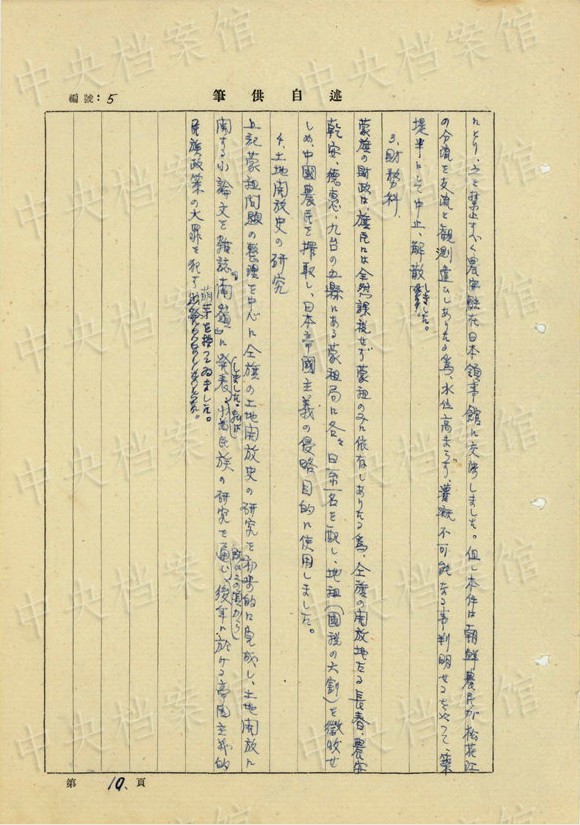 編號：5
筆供自述
たとり、之を禁止すべく農安駐在日本領事館に交渉しました。但し本件は朝鮮農民が松花江
の分流を交流と観測違ひしありたる為、水位高まらず、灌漑不可能なる事判明せるをもつて、築
堤半にして中止、解散しました。
3. 財務科.
蒙旗の財政は、旗民には全然課税せず蒙租のみに依存しありたる為、全旗の開放地たる長春、農安
乾安、德惠、九台の五縣にある蒙租局に各々日系一名を配し、地租(國税の六割)を徴收せ
しめ、中國農民を搾取し、日本帝國主義の侵略目的に使用しました。
4. 土地開放史の研究
上記蒙租問題の整理を中心に全旗の土地開放史の研究を初歩的に完成し、土地開放に
関する小論文を雜誌「」に発表しました。私は民族の研究を通じ、後年に於ける帝国主義的
民族政策の大罪を犯す萌芽を培てゐました。
既にこの頃から
第 10、頁
中央档案馆